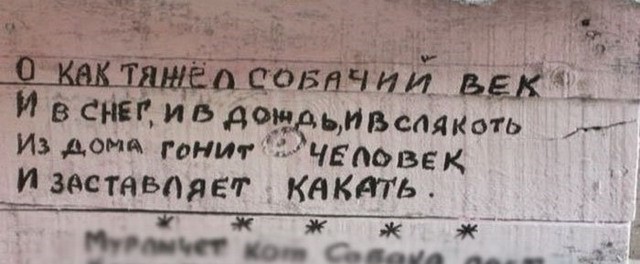 О КАК ТЯЖЁЛ СОБАЧИЙ ВЕК
И В СНЕГ, И В ДОЖДЬ, И В СЛЯКОТЬ
ИЗ ДОМА ГОНИТ ЧЕЛОВЕК
И ЗАСТАВЛЯЕТ КАКАТЬ.
* * * * *
КОТ СОБАКА